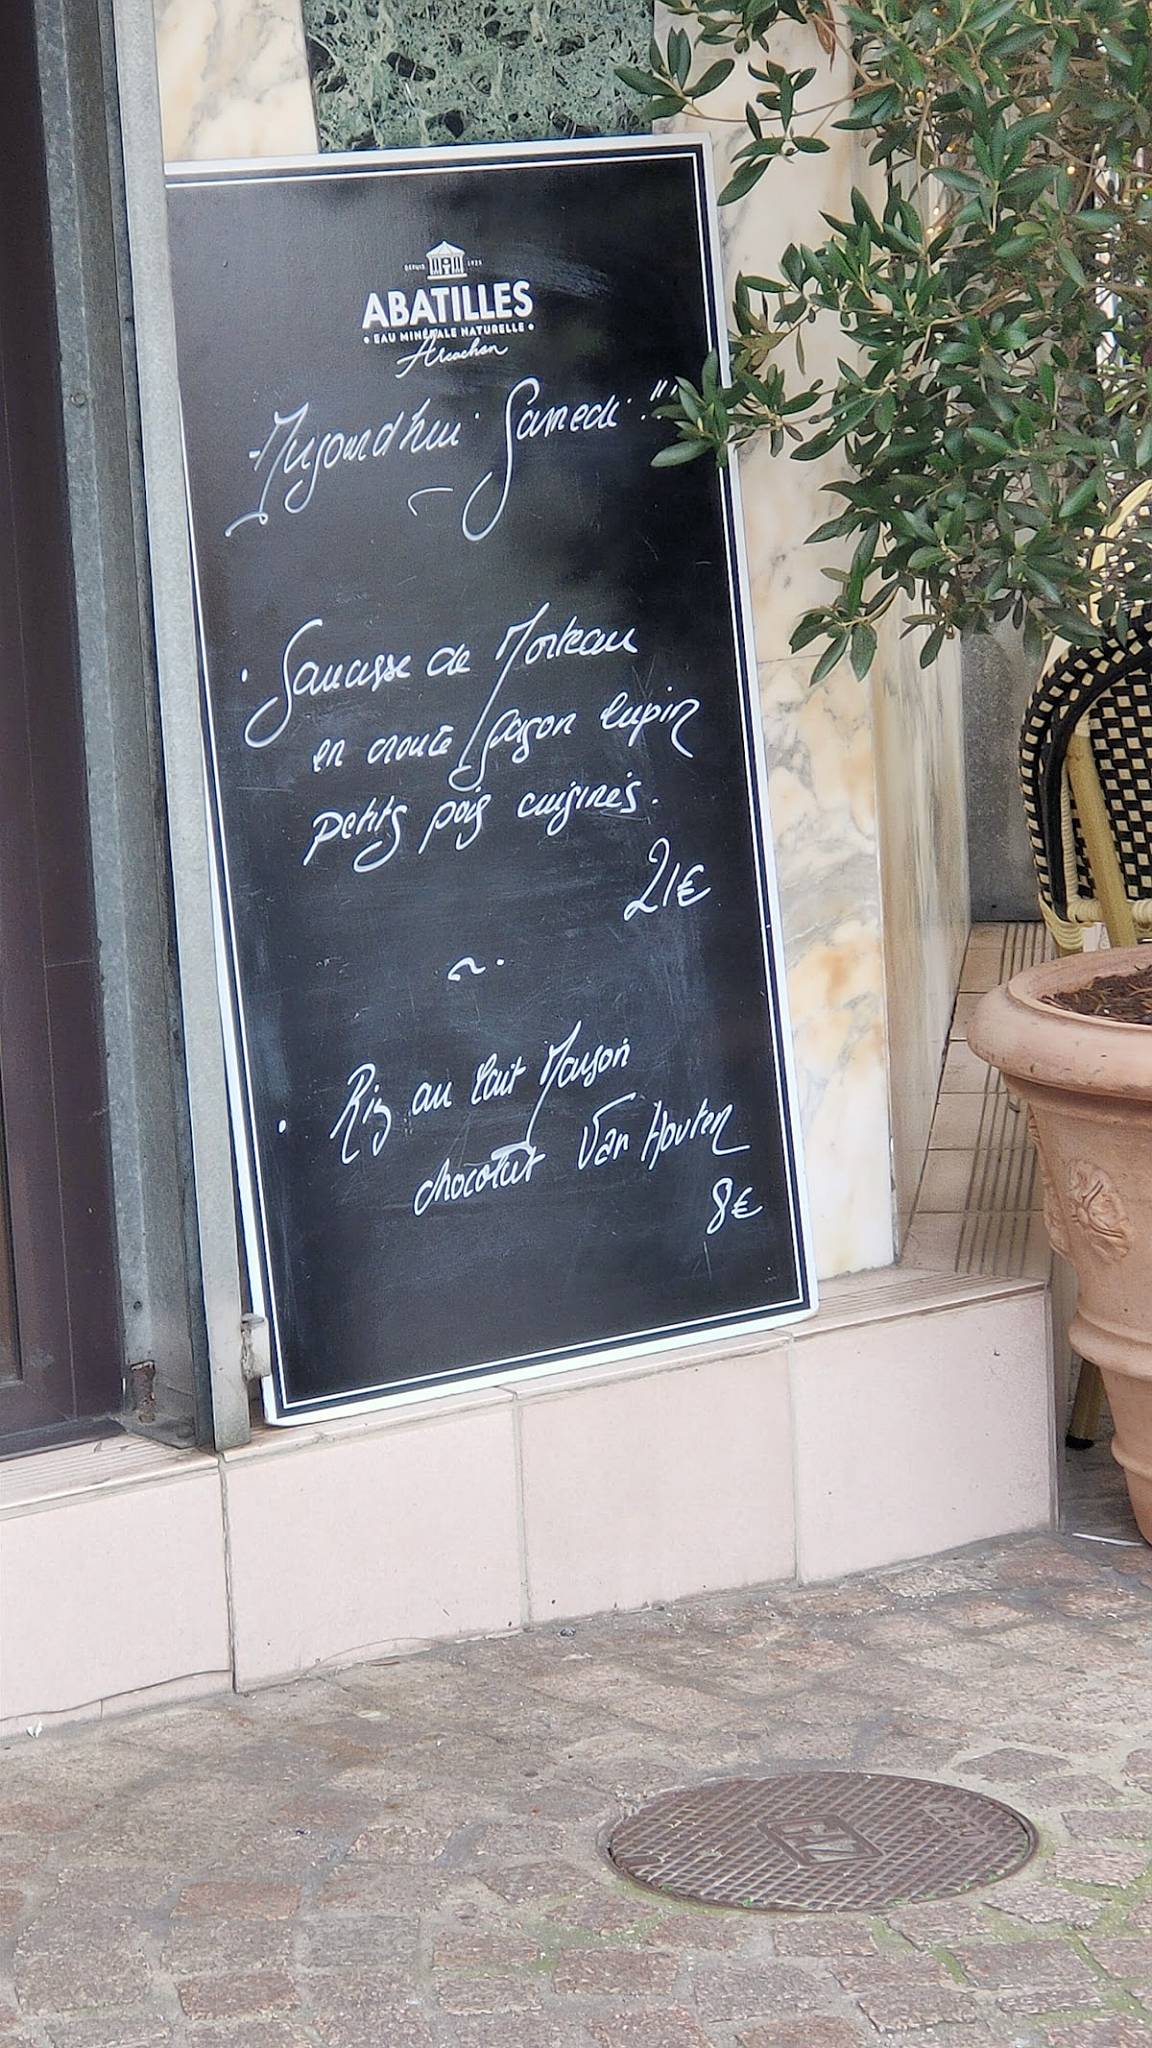 DEPUIS 1925
ABATILLES
• EAU MINÉRALE NATURELLE •
Arcachon
Aujourd'hui Samedi !!
• Saucisse de Morteau
en croute façon lupin
petits pois cuisinés.
21€
~.
• Riz au lait Maison
chocolat Van Houten
8€